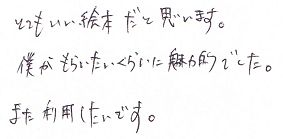 とてもいい絵本だと思います。
僕がもらいたいくらいに魅力的でした。
また利用したいです。